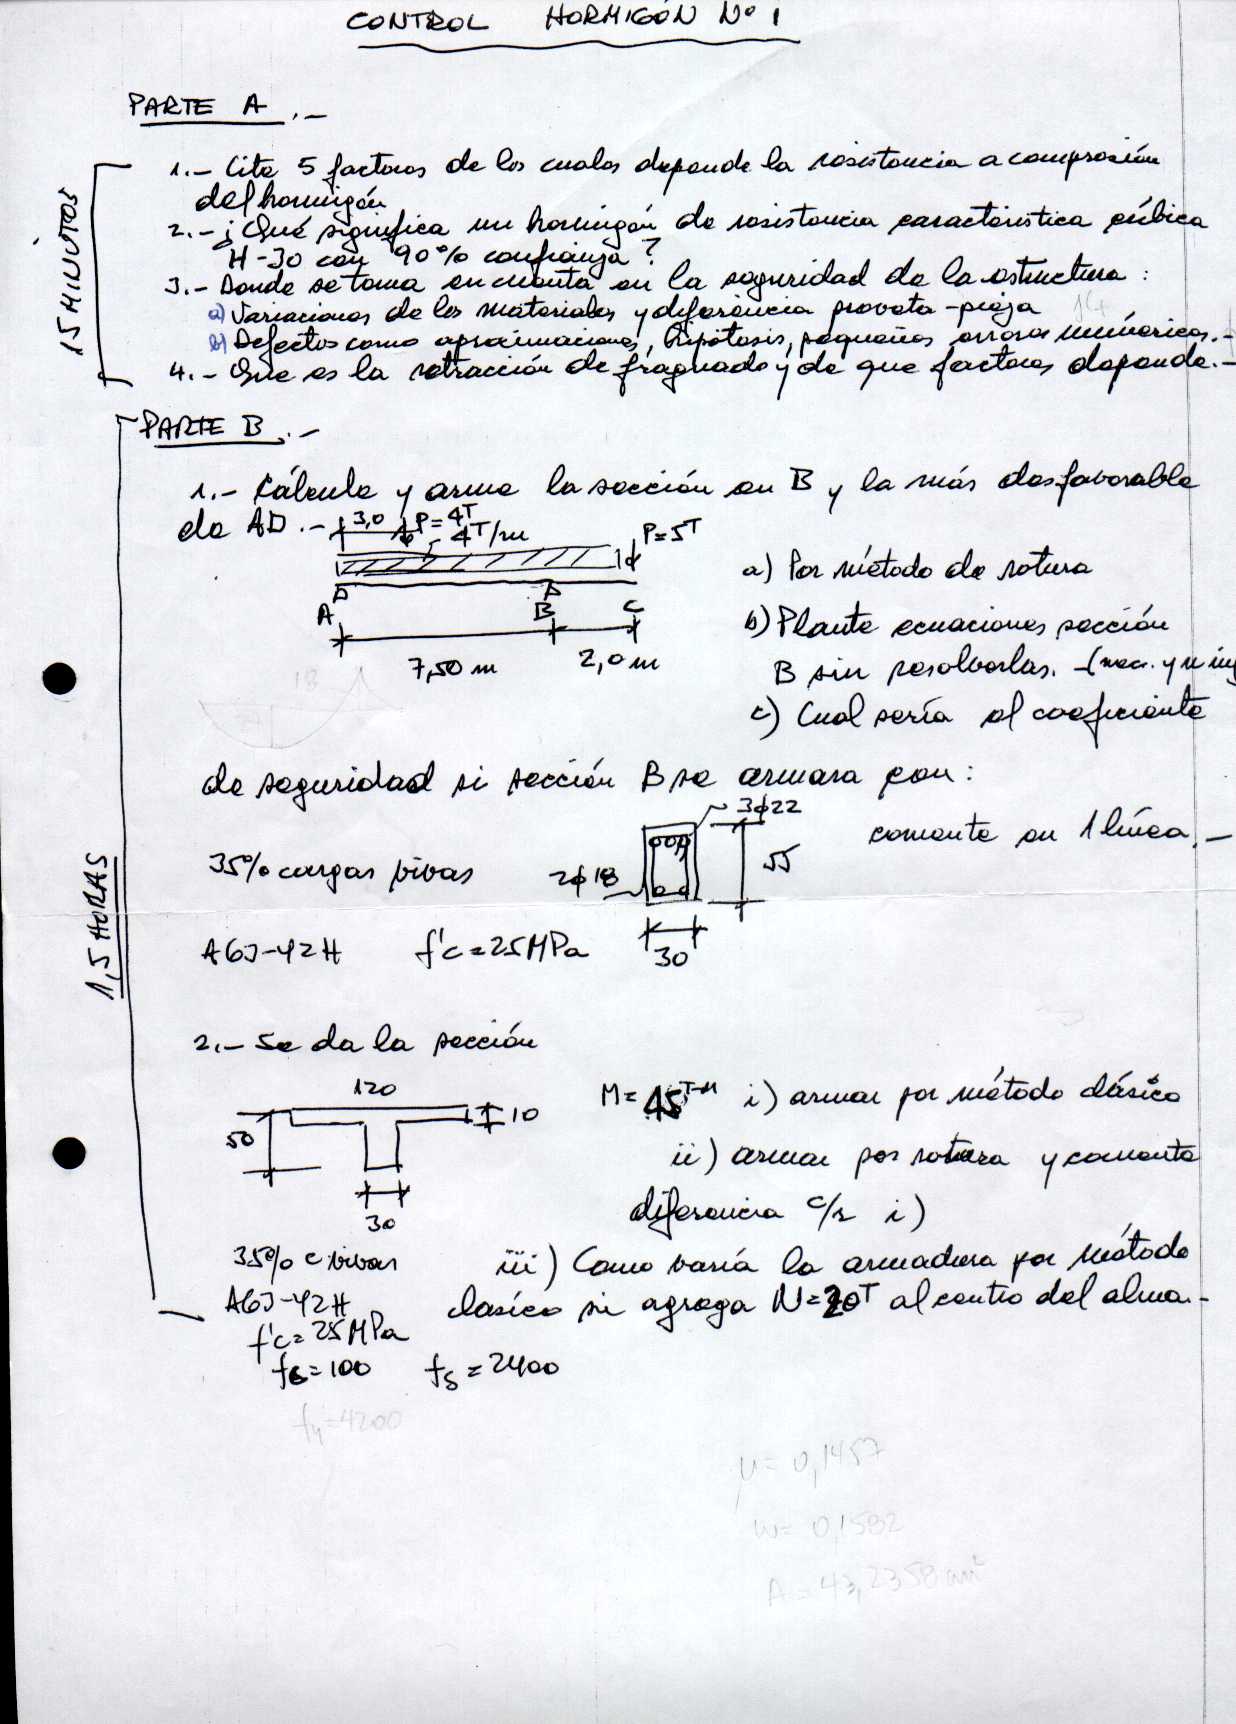 CONTROL HORMIGÓN Nº 1
PARTE A .-
15 MINUTOS
1.- Cite 5 factores de los cuales depende la resistencia a compresión
del hormigón
2.- ¿Qué significa un hormigón de resistencia característica cúbica
H-30 con 90% confianza?
3.- Donde se toma en cuenta en la seguridad de la estructura :
a) Variaciones de los materiales y diferencia probeta - pieza
b) Defectos como aproximaciones, hipótesis, pequeños errores numéricos.-
4.- Que es la retracción de fraguado y de que factores depende.-
PARTE B .-
1,5 HORAS
1.- Cálcule y arme la sección en B y la más desfavorable
de AD .-
3,0 P=4T
4T/m P=5T
A B C
7,50 m 2,0 m
a) Por método de rotura
b) Plante ecuaciones sección
B sin resolverlas. -(nec. y
c) Cual sería el coeficiente
de seguridad si sección B se armara con :
3ϕ22
comente en 1 línea.-
35% cargas vivas 2ϕ18 55
30
A63-42H f'c=25MPa
2.- Se da la sección
120
50 10
30
M= 45T-M i) armar por método clásico
ii) armar por rotura y comente
diferencia c/r i)
35% c vivas iii) Como varía la armadura por método
A63-42H clasico si agrega N=20T al centro del alma.-
f'c=25MPa
fc=100 fs=2400
fy=4200
μ= 0,1457
w= 0,1582
A= 43,2358 cm²